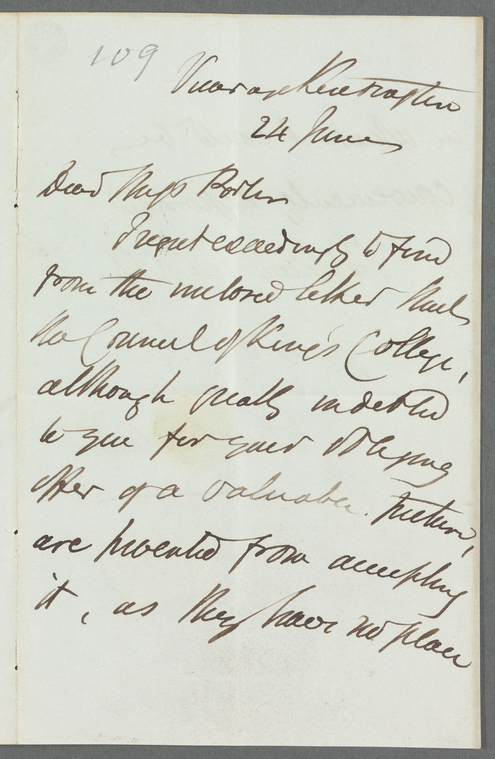 109
Vicarage Kensington
24 June
Dear Miss
I regret exceedingly to find
from the inclosed letter that
the Council of King's College,
although greatly indebted
to you for your obliging
offer of a valuable Picture,
are prevented from accepting
it, as they have no place